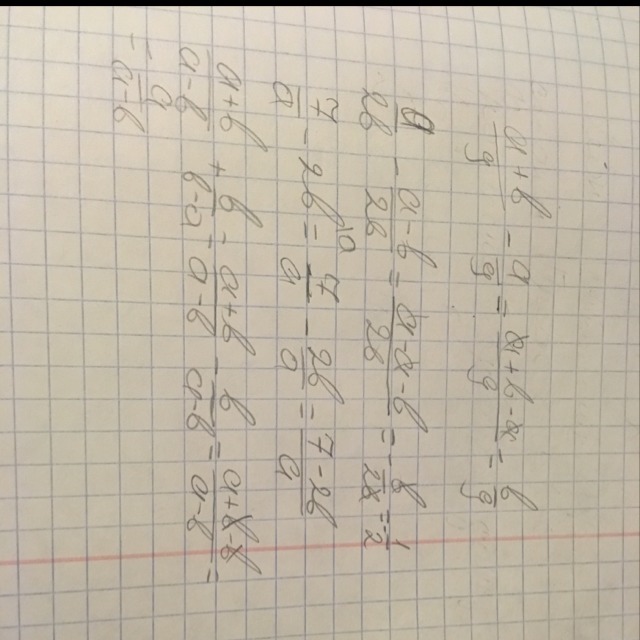 (a+b)/9 - a/9 = (a+b-a)/9 = b/9
a/2b - (a-b)/2b = (a-a-b)/2b = -b/2b = -1/2
7/a - 2b = 7/a - 2b/a = (7-2b)/a
(a+b)/(a-b) + b/(b-a) = (a+b)/(a-b) - b/(a-b) = (a+b-b)/(a-b) =
= a/(a-b)